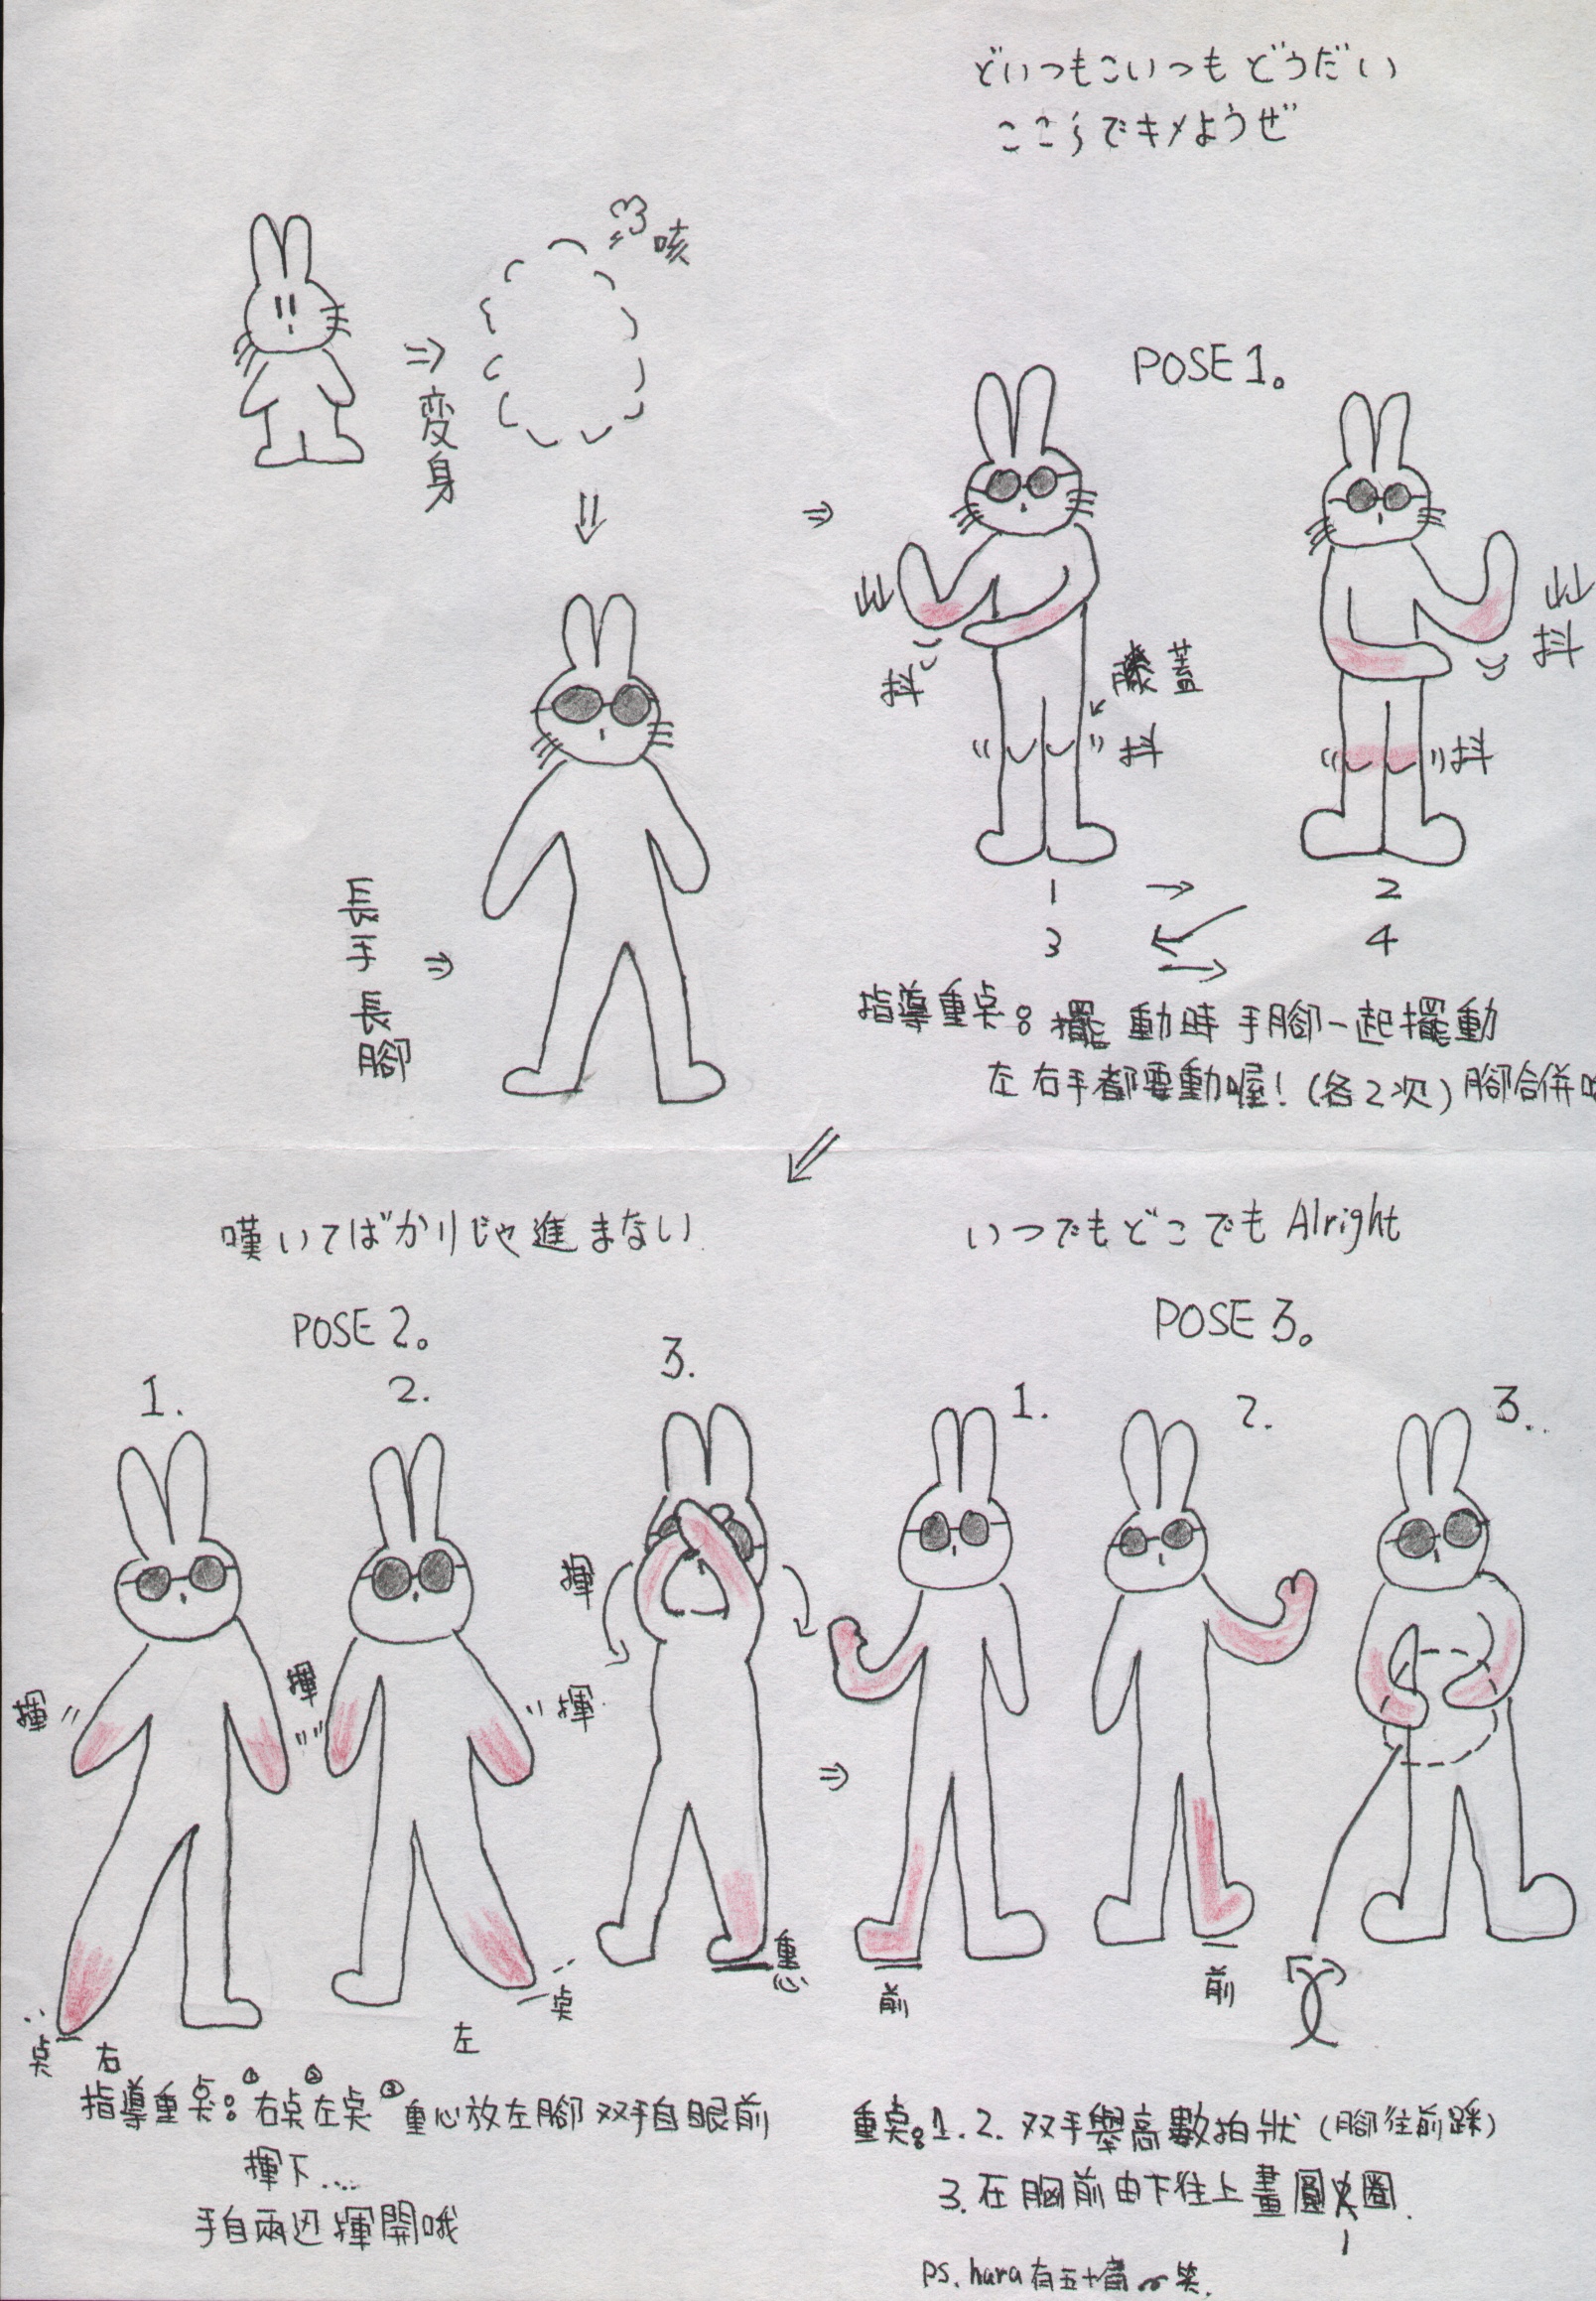 どいつもこいつも どうだい
ここらでキメようぜ
咳
変身
長手長腳
POSE 1。
抖
膝蓋
抖
抖
抖
1 2
3 4
指導重点：擺動時手腳一起擺動
左右手都要動喔！(各2次) 腳合併
嘆いてばかりじゃ進まない
POSE 2。
1.
2.
3.
揮
揮
揮
揮
点
右
左
点
重心
指導重点：①右点②左点③重心放左腳 双手自眼前
揮下....
手自兩辺揮開哦
いつでもどこでも Alright
POSE 3。
1.
2.
3..
前
前
重点：1.2. 双手舉高數拍狀 (腳往前踩)
3.在胸前由下往上畫圓圈.
PS. hara有五十肩 笑.